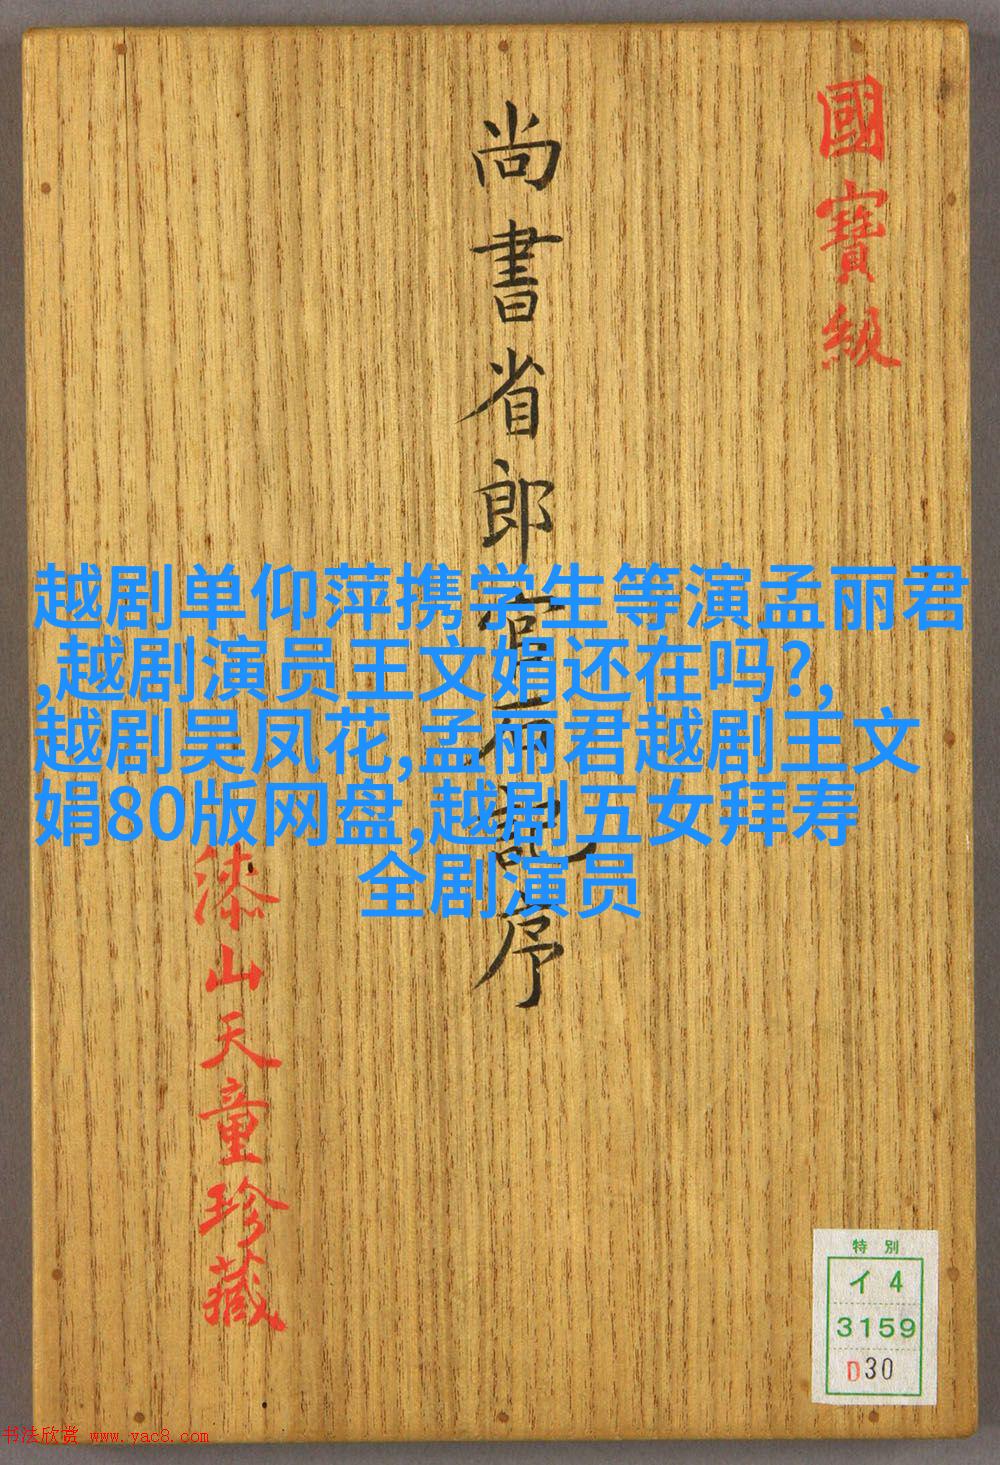 國寶級
尚書省郎官石記序
漆山天童珍藏
越剧单仰萍携学生等演孟丽君
,越剧演员王文娟还在吗?,
越剧吴凤花,孟丽君越剧王文
娟80版网盘,越剧五女拜寿
全剧演员
特別
イ 4
3159
D30
书法欣赏 www.yac8.com